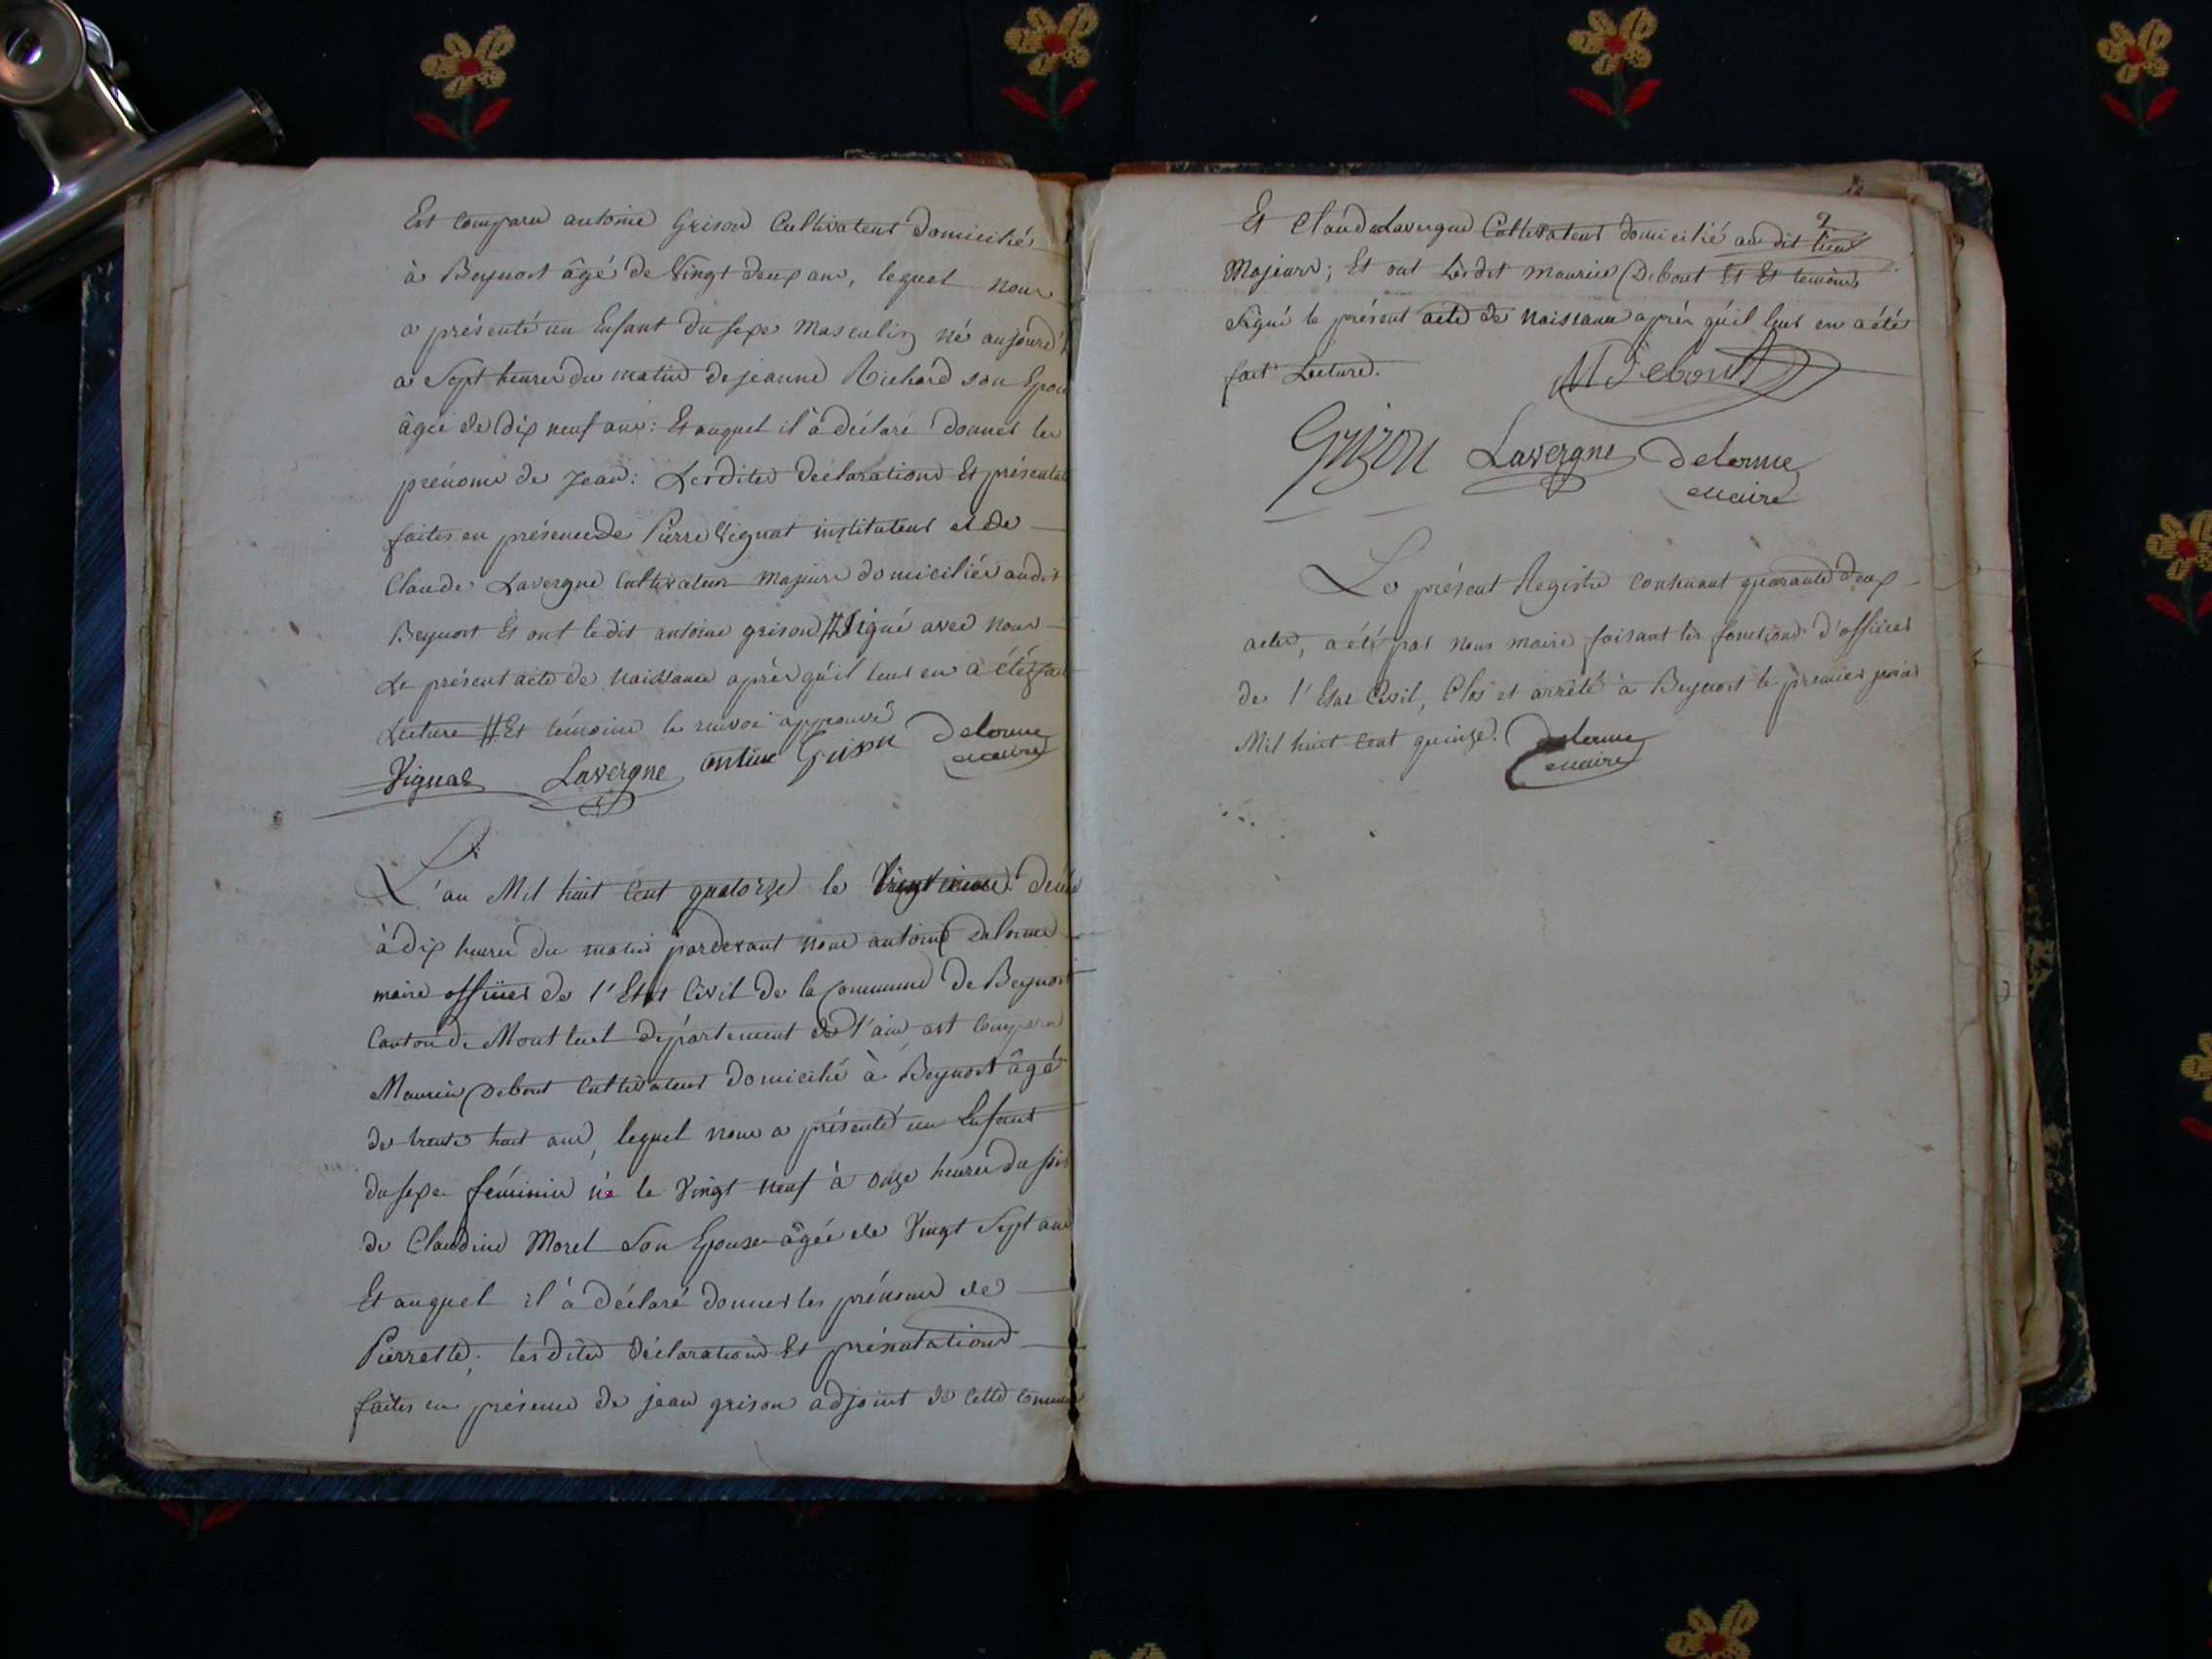 Est Comparu antoine Grison Cultivateur Domicilié
à Beynost âgé de Vingt deux ans, lequel nous
a présenté un Enfant du sexe Masculin né aujourd'h
a Sept heures du matin de jeanne Richard son Epou
âgée de dix neuf ans: Et auquel il à déclaré donner les
prénoms de Jean: Lesdites déclarations Et présentat
faites en présence de Pierre Vignat instituteur et de
Claude Lavergne Cultivateur Majeurs domiciliés audit
Beynost Et ont ledit antoine grison # Signé avec nous
Le présent acte de Naissance après qu'il leur en a été fai
Lecture # Et témoins le renvoi approuvé
Vignat Lavergne antoine Grison Delorme
maire
L'an Mil huit Cent quatorze le
à dix heures du matin pardevant nous antoine Delorme
maire officier de l'Etat Civil de la Commune de Beynost
Canton de Montluel département de l'ain, est Comparu
Maurice Debout Cultivateur domicilié à Beynost âgé
de trente huit ans, lequel nous a présenté un Enfant
du sexe féminin né le Vingt neuf à onze heures du soir
de Claudine Morel Son Epouse âgée de Vingt Sept ans
Et auquel il à déclaré donner les prénoms de
Pierrette; lesdites déclarations Et présentations
faites en présence de jean grison adjoint de cette commun
2
Et Claude Lavergne Cultivateur domicilié audit lieu
Majeurs; Et ont Ledit Maurice Debout Et Et temoins
Signé le présent acte de Naissance après qu'il leur en a été
fait Lecture.
M Debout
Grizon Lavergne Delorme
maire
Le présent Registre Contenant quarante deux
actes, a été par nous maire faisant les fonctions d'officier
de l'Etat Civil, Clos et arrêté à Beynost le premier janvier
Mil huit Cent quinze. Delorme
maire